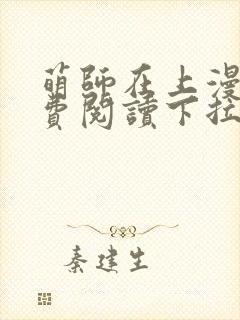 萌師在上漫
費閱讀下拉
秦建生